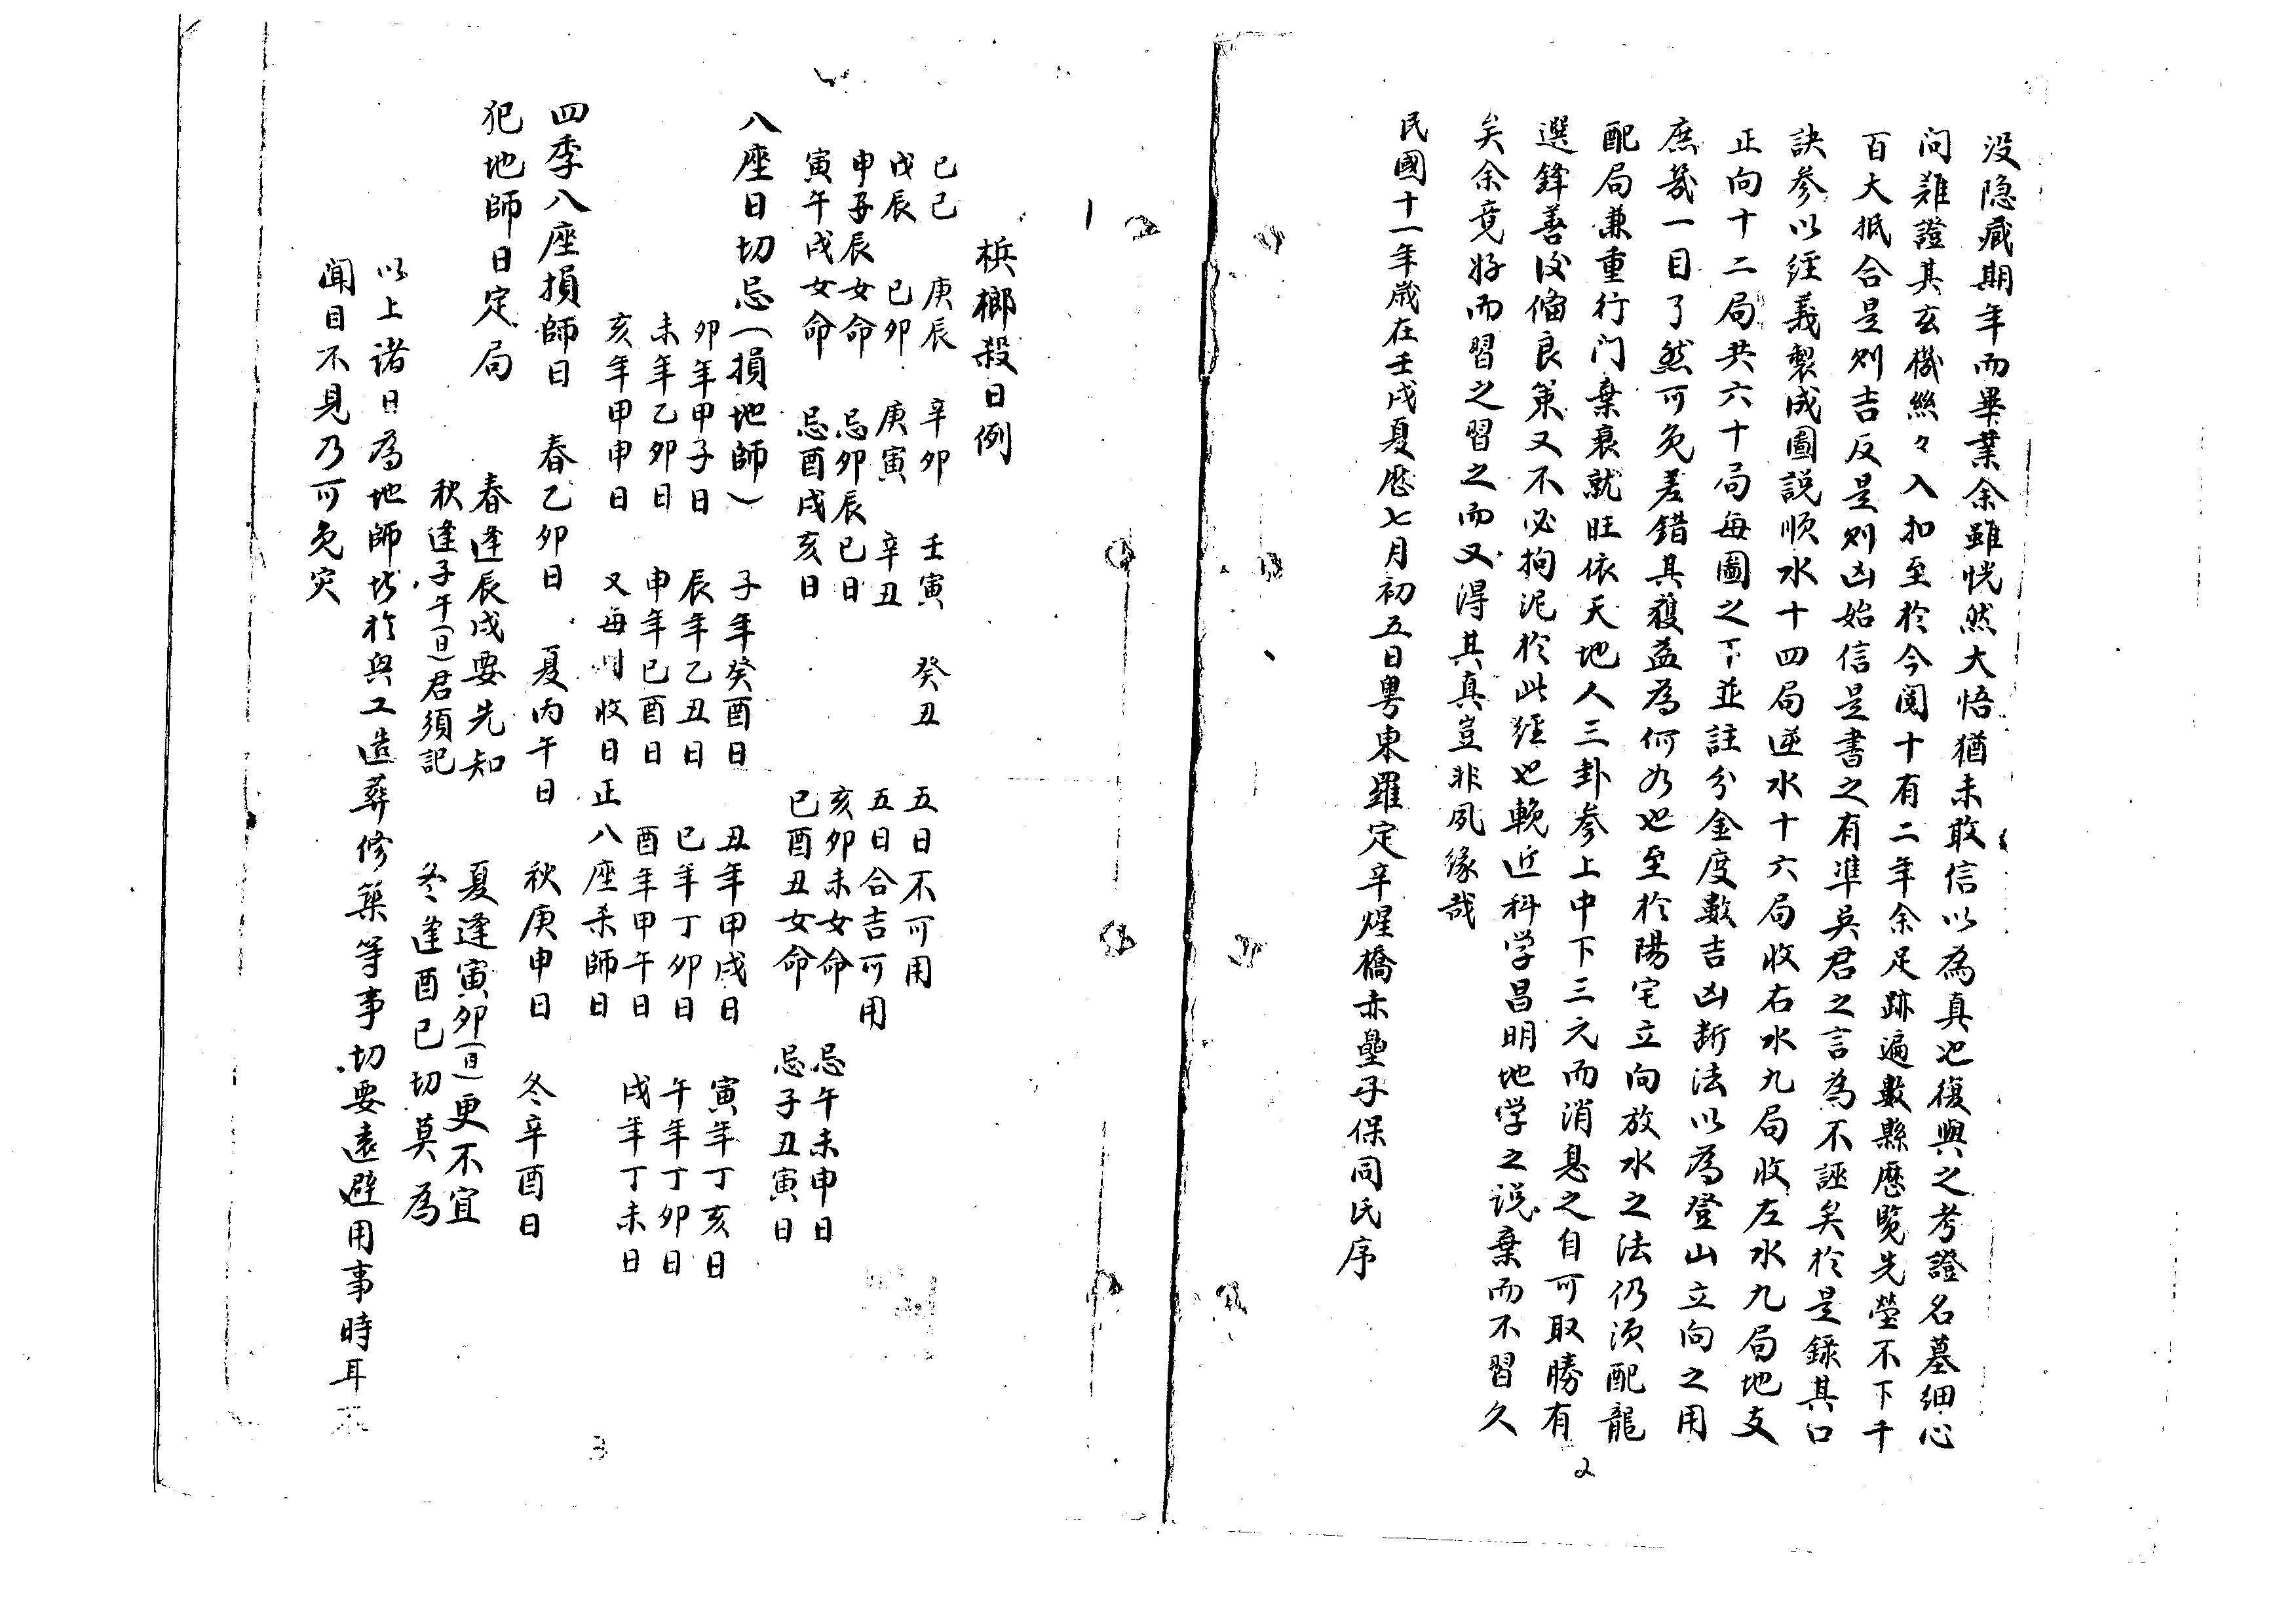 没隐藏期年而畢業余雖恍然大悟猶未敢信以為真也復與之考證名墓細心
问難證其玄機絲々入扣至於今閱十有二年余足跡遍數縣歷覧先塋不下千
百大抵合是则吉反是则凶始信是書之有準吳君之言為不誣矣於是錄其口
訣参以经義製成圖説顺水十四局逆水十六局收右水九局收左水九局地支
正向十二局共六十局每圖之下並註分金度數吉凶断法以為登山立向之用
庶幾一目了然可免差錯其獲益為何如也至於陽宅立向放水之法仍須配龍
配局兼重行门棄衰就旺依天地人三卦参上中下三元而消息之自可取勝有
選鋒善後偹良策又不必拘泥於此经也輓近科学昌明地学之說棄而不習久
矣余竟好而習之習之而又得其真豈非夙缘哉
民國十一年歲在壬戌夏歷七月初五日粤東羅定辛煋橋赤壘子保同氏序
2
梹榔殺日例
己巳 庚辰 辛卯 壬寅 癸丑 五日不可用
戊辰 己卯 庚寅 辛丑 五日合吉可用
申子辰女命 忌卯辰巳日 亥卯未女命 忌午未申日
寅午戌女命 忌酉戌亥日 巳酉丑女命 忌子丑寅日
八座日切忌(損地師) 子年癸酉日 丑年甲戌日 寅年丁亥日
卯年甲子日 辰年乙丑日 巳年丁卯日 午年丁卯日
未年乙卯日 申年巳酉日 酉年甲午日 戌年丁未日
亥年甲申日 又每月收日正八座杀師日
四季八座損師日 春乙卯日 夏丙午日 秋庚申日 冬辛酉日
犯地師日定局 春逢辰戌要先知 夏逢寅卯(日)更不宜
秋逢子午(日)君須記 冬逢酉巳切莫為
以上诸日為地師坆於與工造葬修築等事切要遠避用事時耳不
闻目不見乃可免灾
3